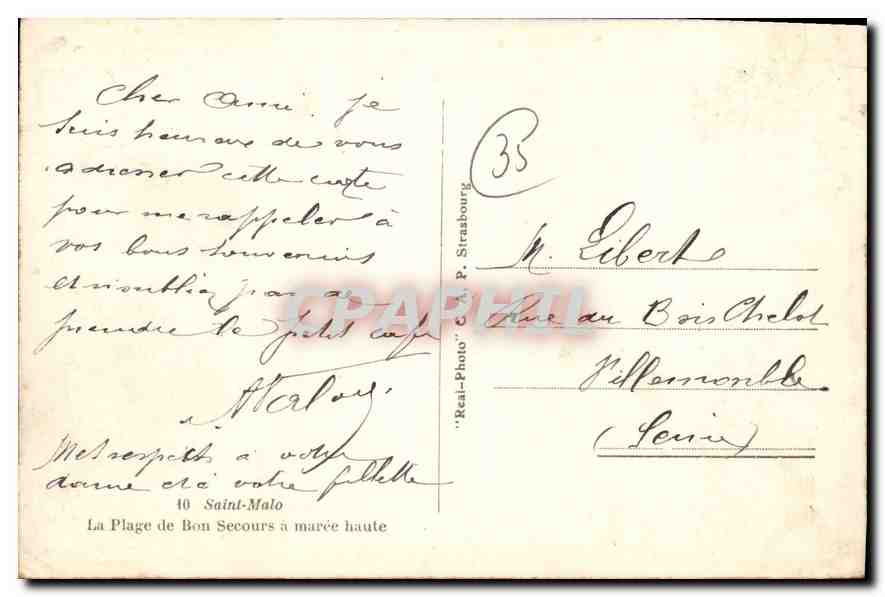 Cher Ami je
suis heureux de vous
adresser cette carte
pour me rappeler à
vos bons souvenirs
et n'oubliez pas de
prendre le petit café
Mes respects à votre
dame et à votre fillette
10 Saint-Malo
La Plage de Bon Secours à marée haute
"Real-Photo" C. A. P. Strasbourg
CPAPHIL
35
M. Libert
Rue du Bois Chelot
Villemomble
(Seine)